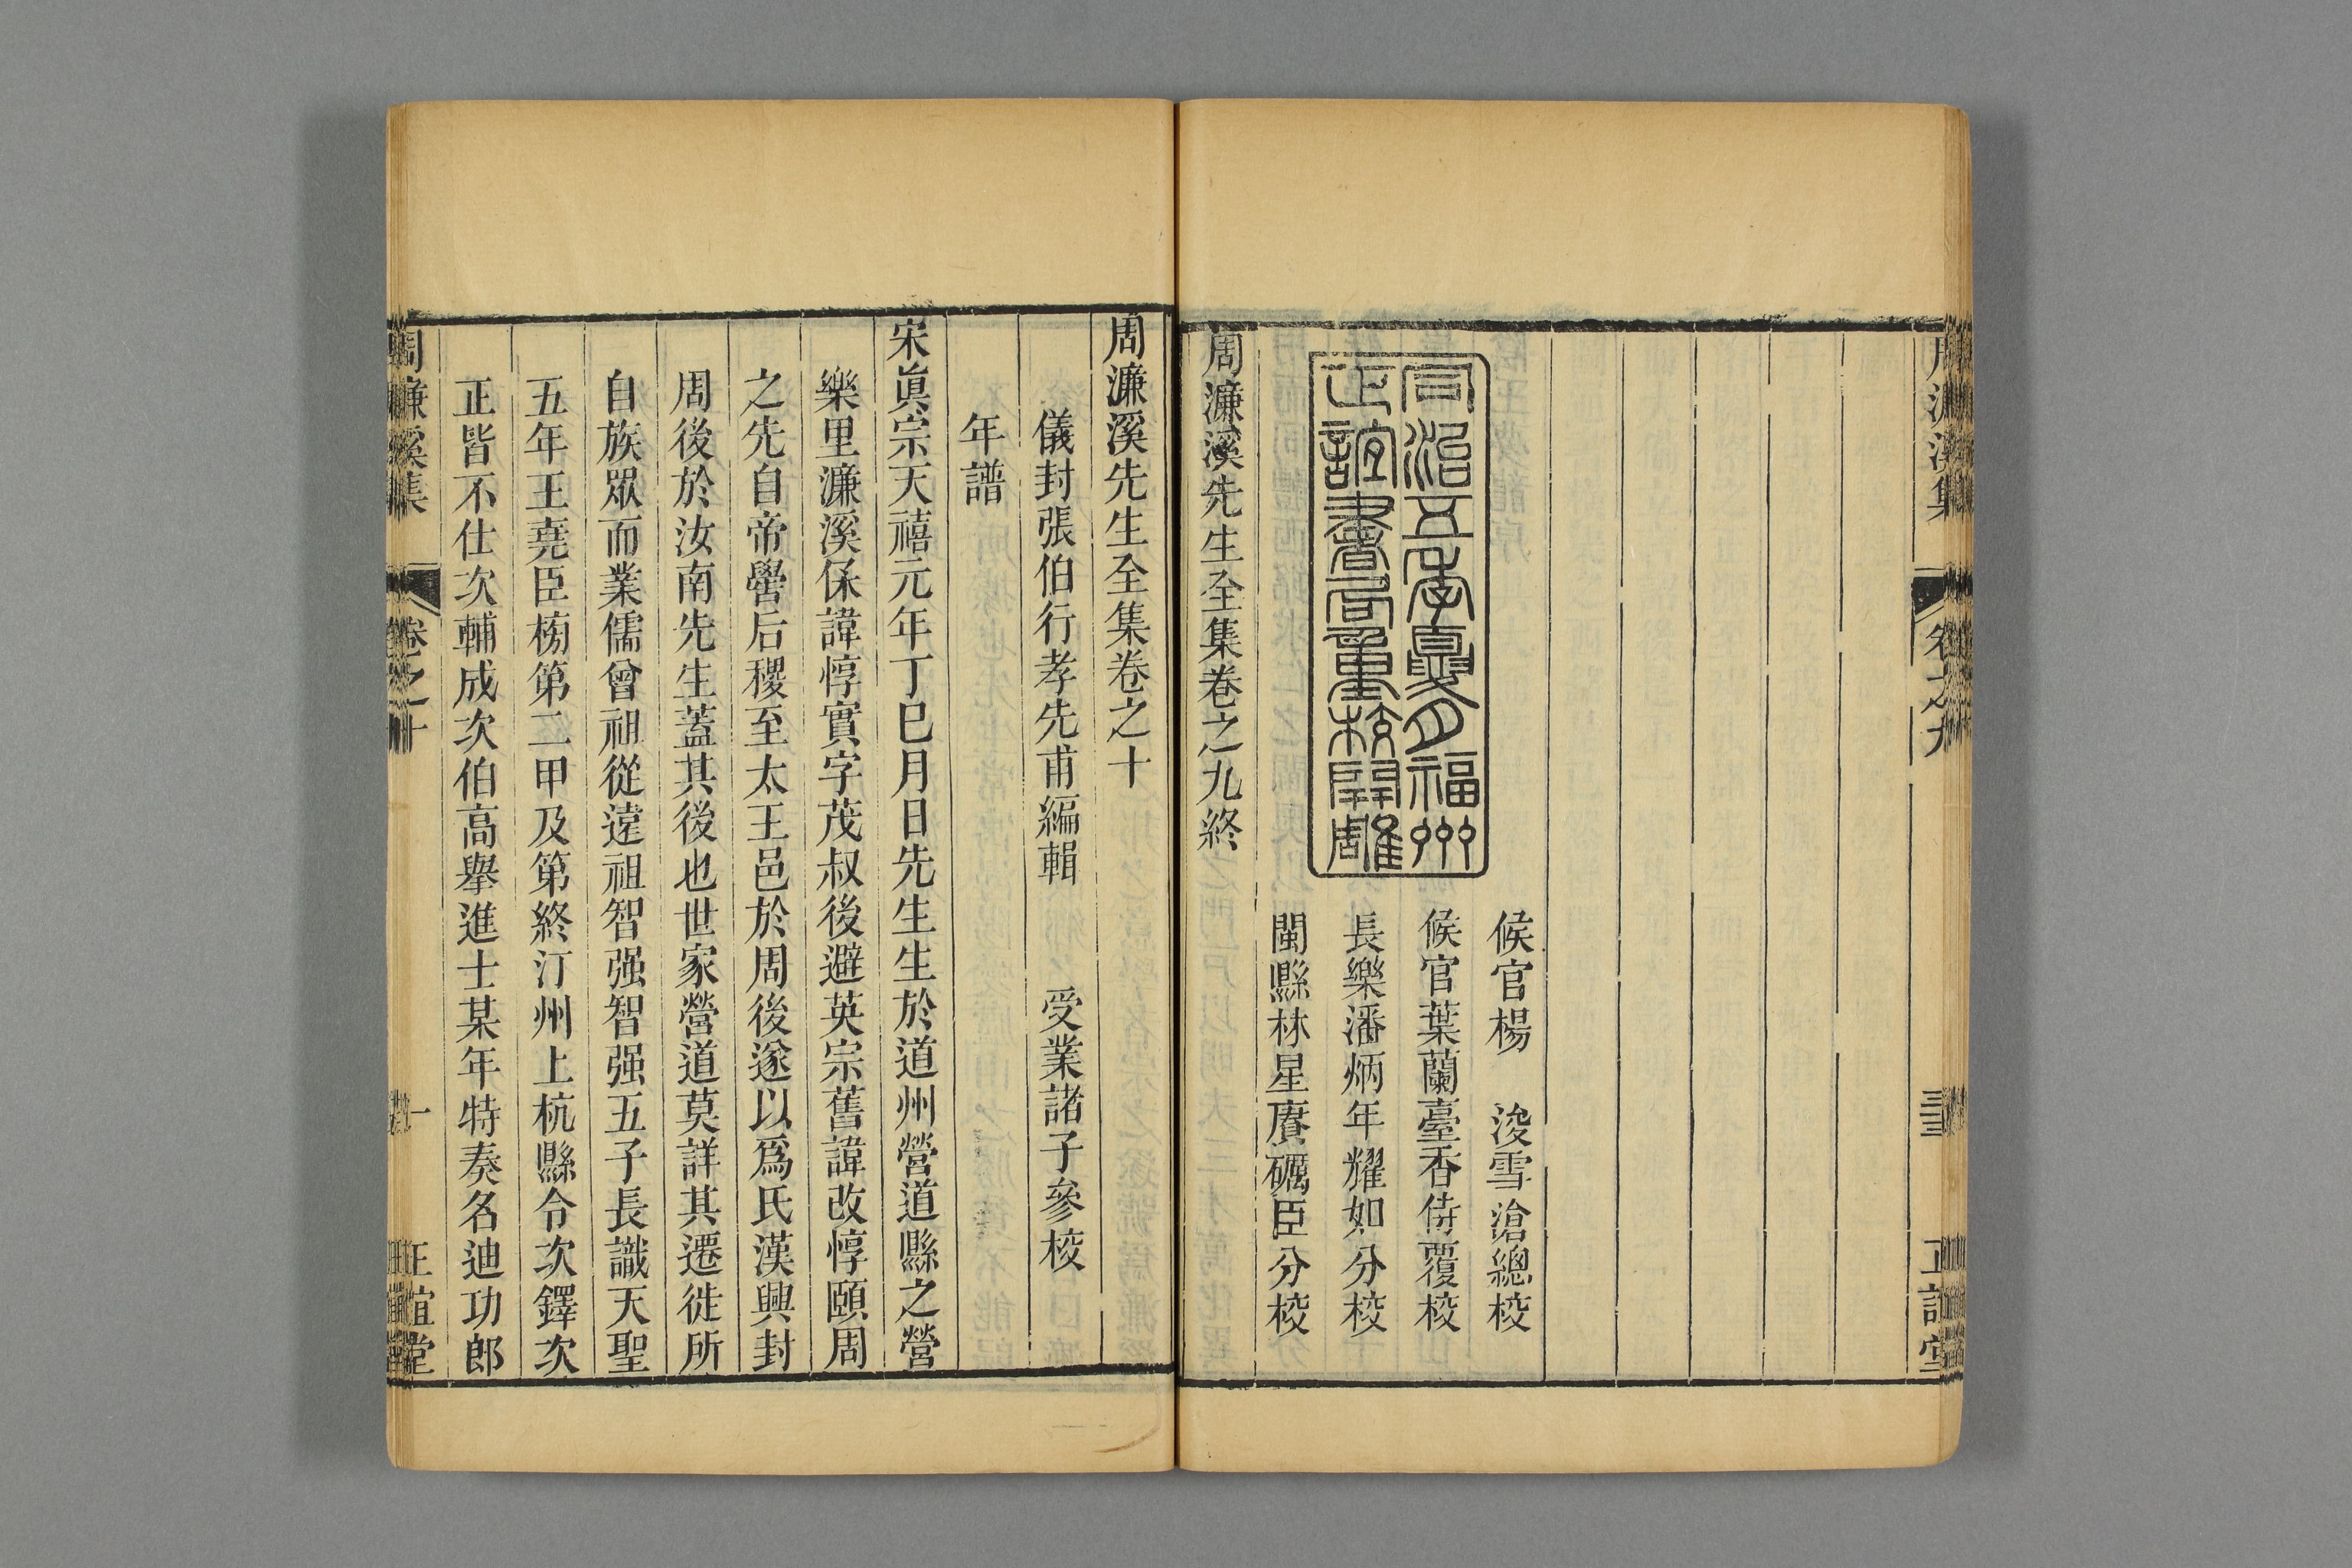 周濂溪集
卷之九
三三
正誼堂
同治五年夏月福州
正誼書局重校開雕
候官楊　浚雪滄總校
候官葉蘭臺香侍覆校
長樂潘炳年耀如分校
閩縣林星賡礪臣分校
周濂溪先生全集卷之九終
周濂溪先生全集卷之十
儀封張伯行孝先甫編輯　受業諸子參校
年譜
宋眞宗天禧元年丁巳月日先生生於道州營道縣之營
樂里濂溪保諱惇實字茂叔後避英宗舊諱改惇頤周
之先自帝嚳后稷至太王邑於周後遂以爲氏漢興封
周後於汝南先生蓋其後也世家營道莫詳其遷徙所
自族眾而業儒曾祖從遠祖智强智强五子長識天聖
五年王堯臣榜第二甲及第終汀州上杭縣令次鐸次
正皆不仕次輔成次伯高舉進士某年特奏名迪功郎
周濂溪集
卷之十
一
正誼堂